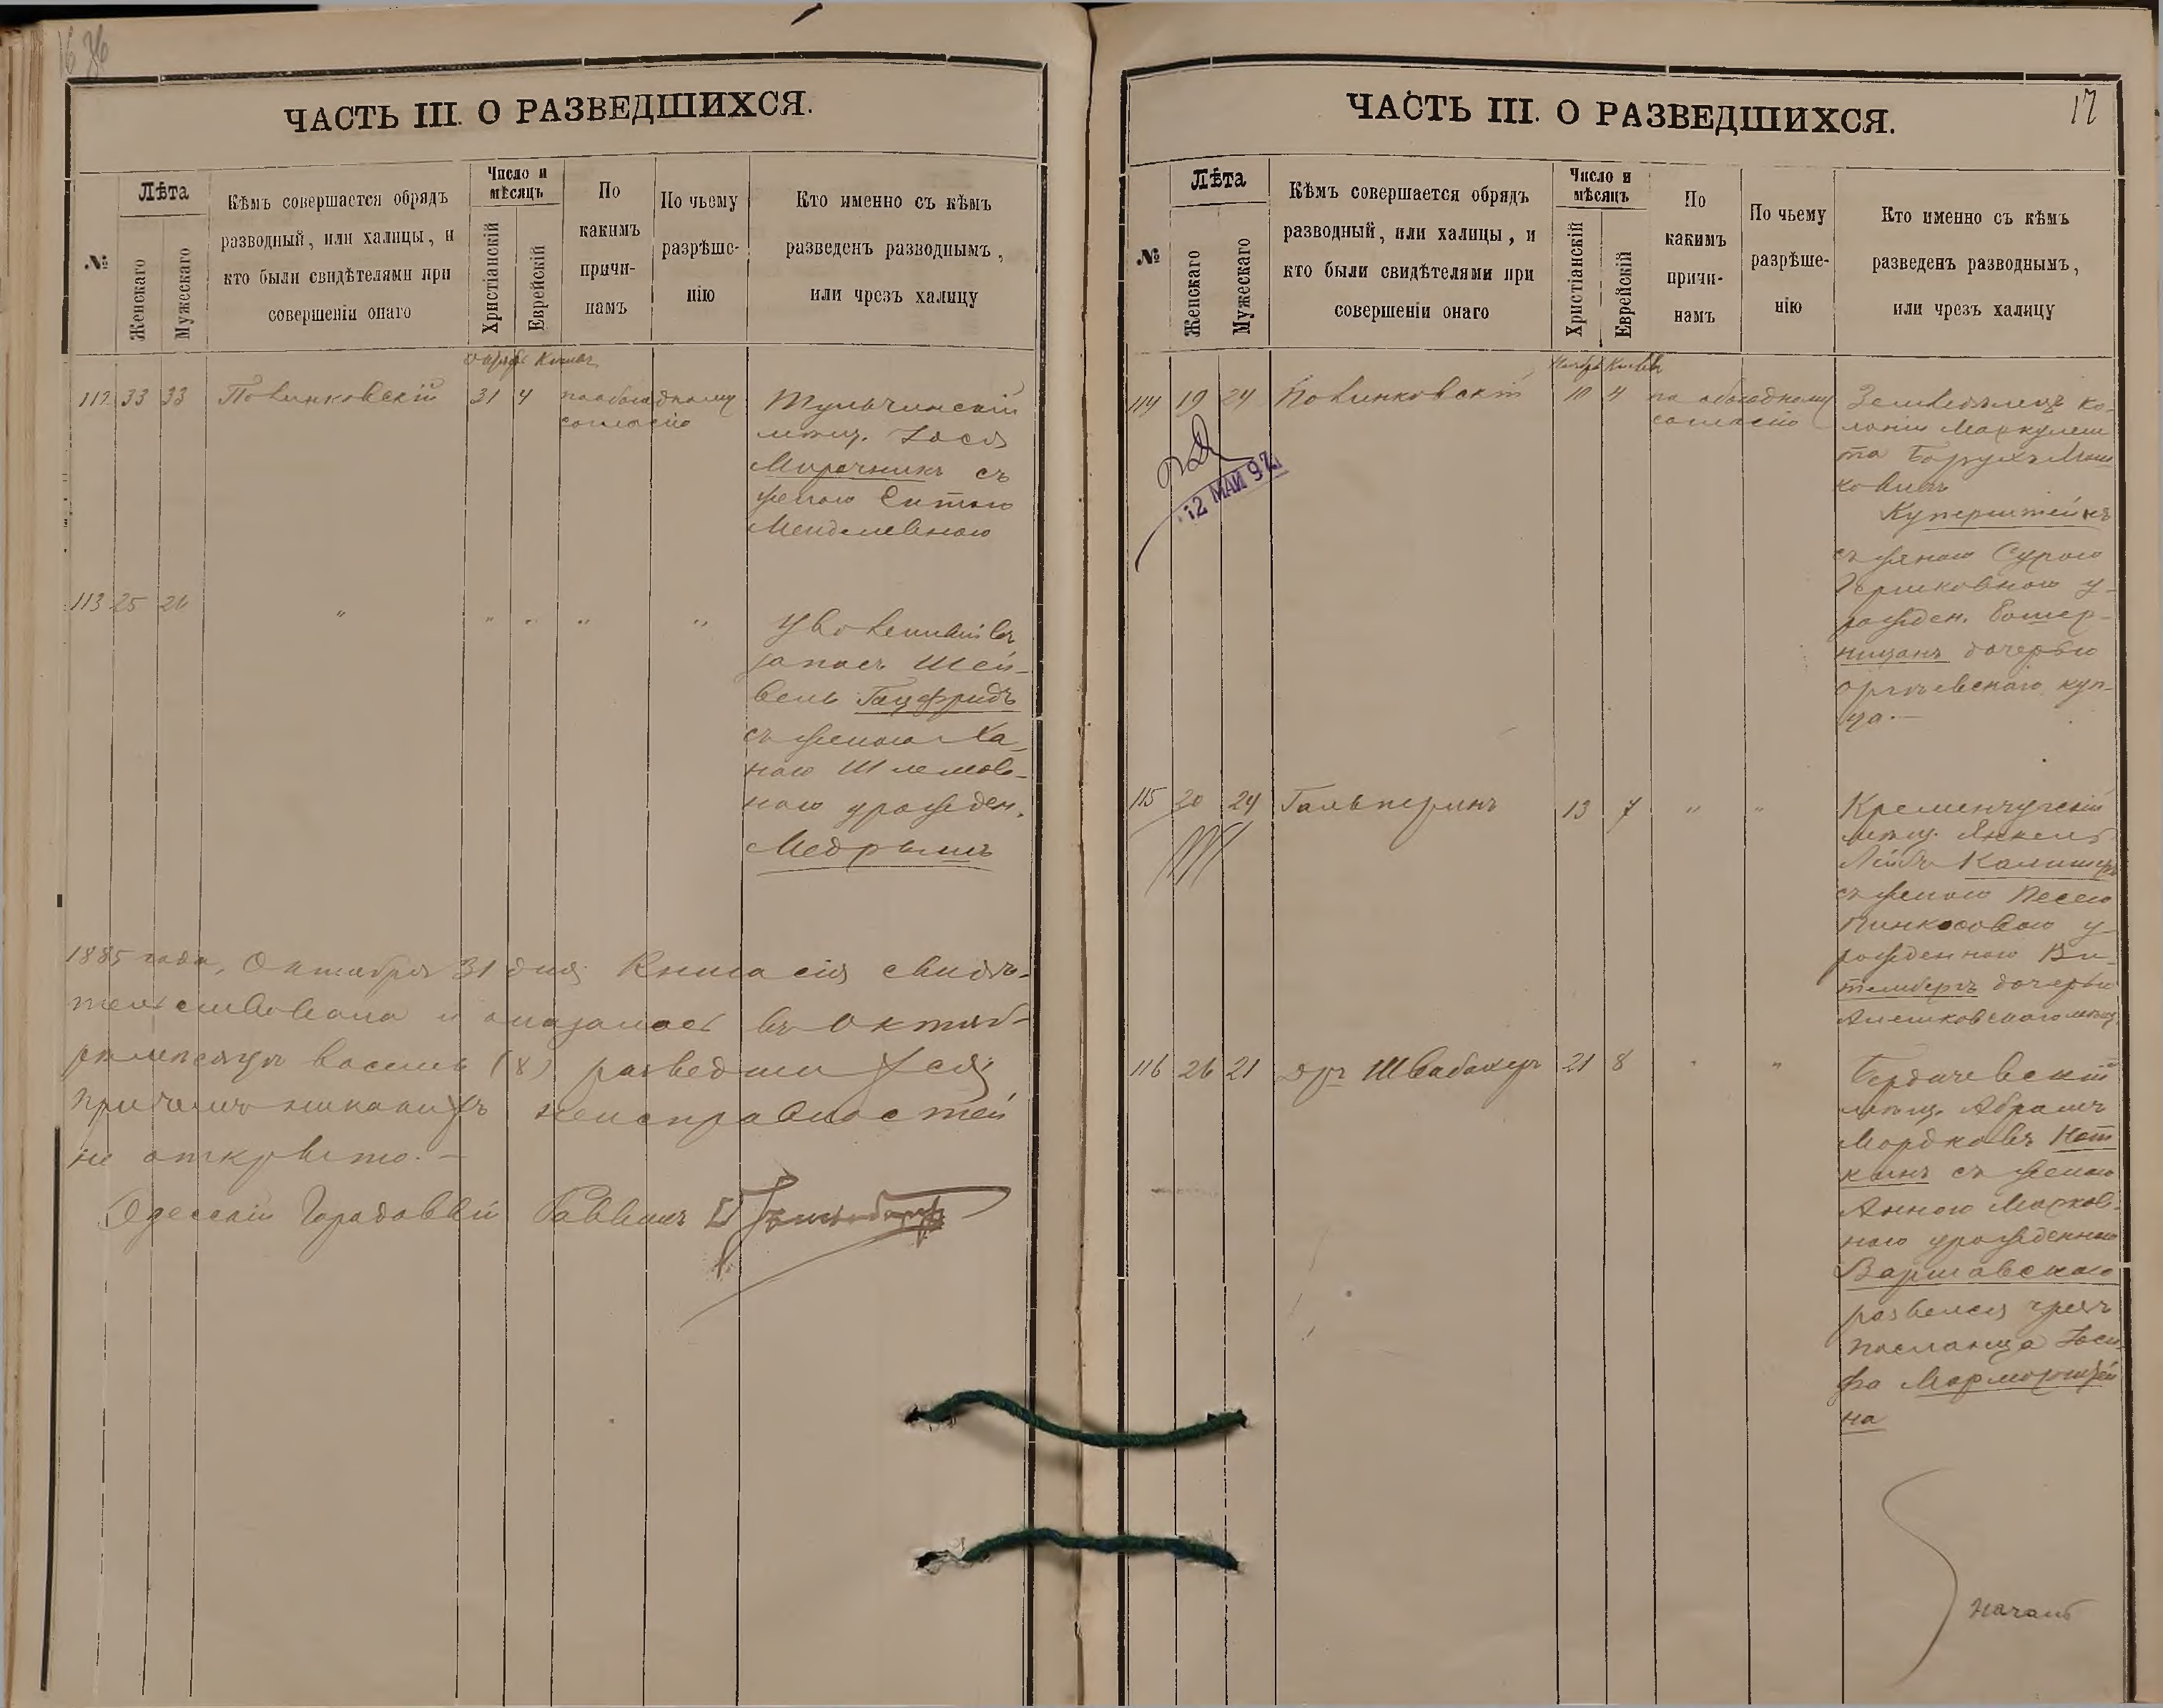 36
ЧАСТЬ III. О РАЗВЕДШИХСЯ.
№
Лѣта
Женскаго
Мужескаго
Кѣмъ совершается обрядъ
разводный, или халицы, и
кто были свидѣтелями при
совершеніи онаго
Число и
мѣсяцъ
Христіанскій
Еврейскій
По
какимъ
причи-
намъ
По чьему
разрѣше-
нію
Кто именно съ кѣмъ
разведенъ разводнымъ,
или чрезъ халицу
Октябрь Кислевъ
112 33 33 Повинковскій 31 4 по обоюдному
согласію
Тульчинскій
мѣщ. Іось
Мирочникъ съ
женою Ентою
Менделевною
113 25 26 " " " " "
Уволенный въ
запасъ Шей-
вель Гацфридъ
съ женою Ха-
ною Шлемов-
ною урожден.
Медрышъ
1885 года, Октября 31 дня. Книга сія свидѣ-
тельствована и оказалось въ Октяб-
рѣ мѣсяцѣ восемь (8) разведшихся;
причемъ никакихъ неисправностей
не открыто. —
Одесскій Городовой Раввинъ
17
ЧАСТЬ III. О РАЗВЕДШИХСЯ.
№
Лѣта
Женскаго
Мужескаго
Кѣмъ совершается обрядъ
разводный, или халицы, и
кто были свидѣтелями при
совершеніи онаго
Число и
мѣсяцъ
Христіанскій
Еврейскій
По
какимъ
причи-
намъ
По чьему
разрѣше-
нію
Кто именно съ кѣмъ
разведенъ разводнымъ,
или чрезъ халицу
Ноябрь Кислевъ
114 19 24 Повинковскій 10 4 по обоюдному
согласію
12 МАЙ 97
Земледѣлецъ ко-
лоніи Маркулеш
та Борухъ Мош
ковичъ
Куперштейнъ
съ женою Сурою
Гершковною у-
рожден. Бошер-
ницанъ дочерью
оргѣевскаго куп-
ца. —
115 20 24 Гальперинъ 13 7 " "
Кременчугскій
мѣщ. Янкель
Лейбъ Калишеръ
съ женою Песею
Пинкосовою у-
рожденною Ви-
тембергъ дочерью
Алешковскаго мѣщ.
116 26 21 Д-ръ Швабахеръ 21 8 " "
Бердичевскій
мѣщ. Абрамъ
Мордковъ Нот
кинъ съ женою
Анною Марков-
ною урожденною
Варшавскою
развелся чрезъ
посланца Іоси-
фа Марморштей
на
Началъ